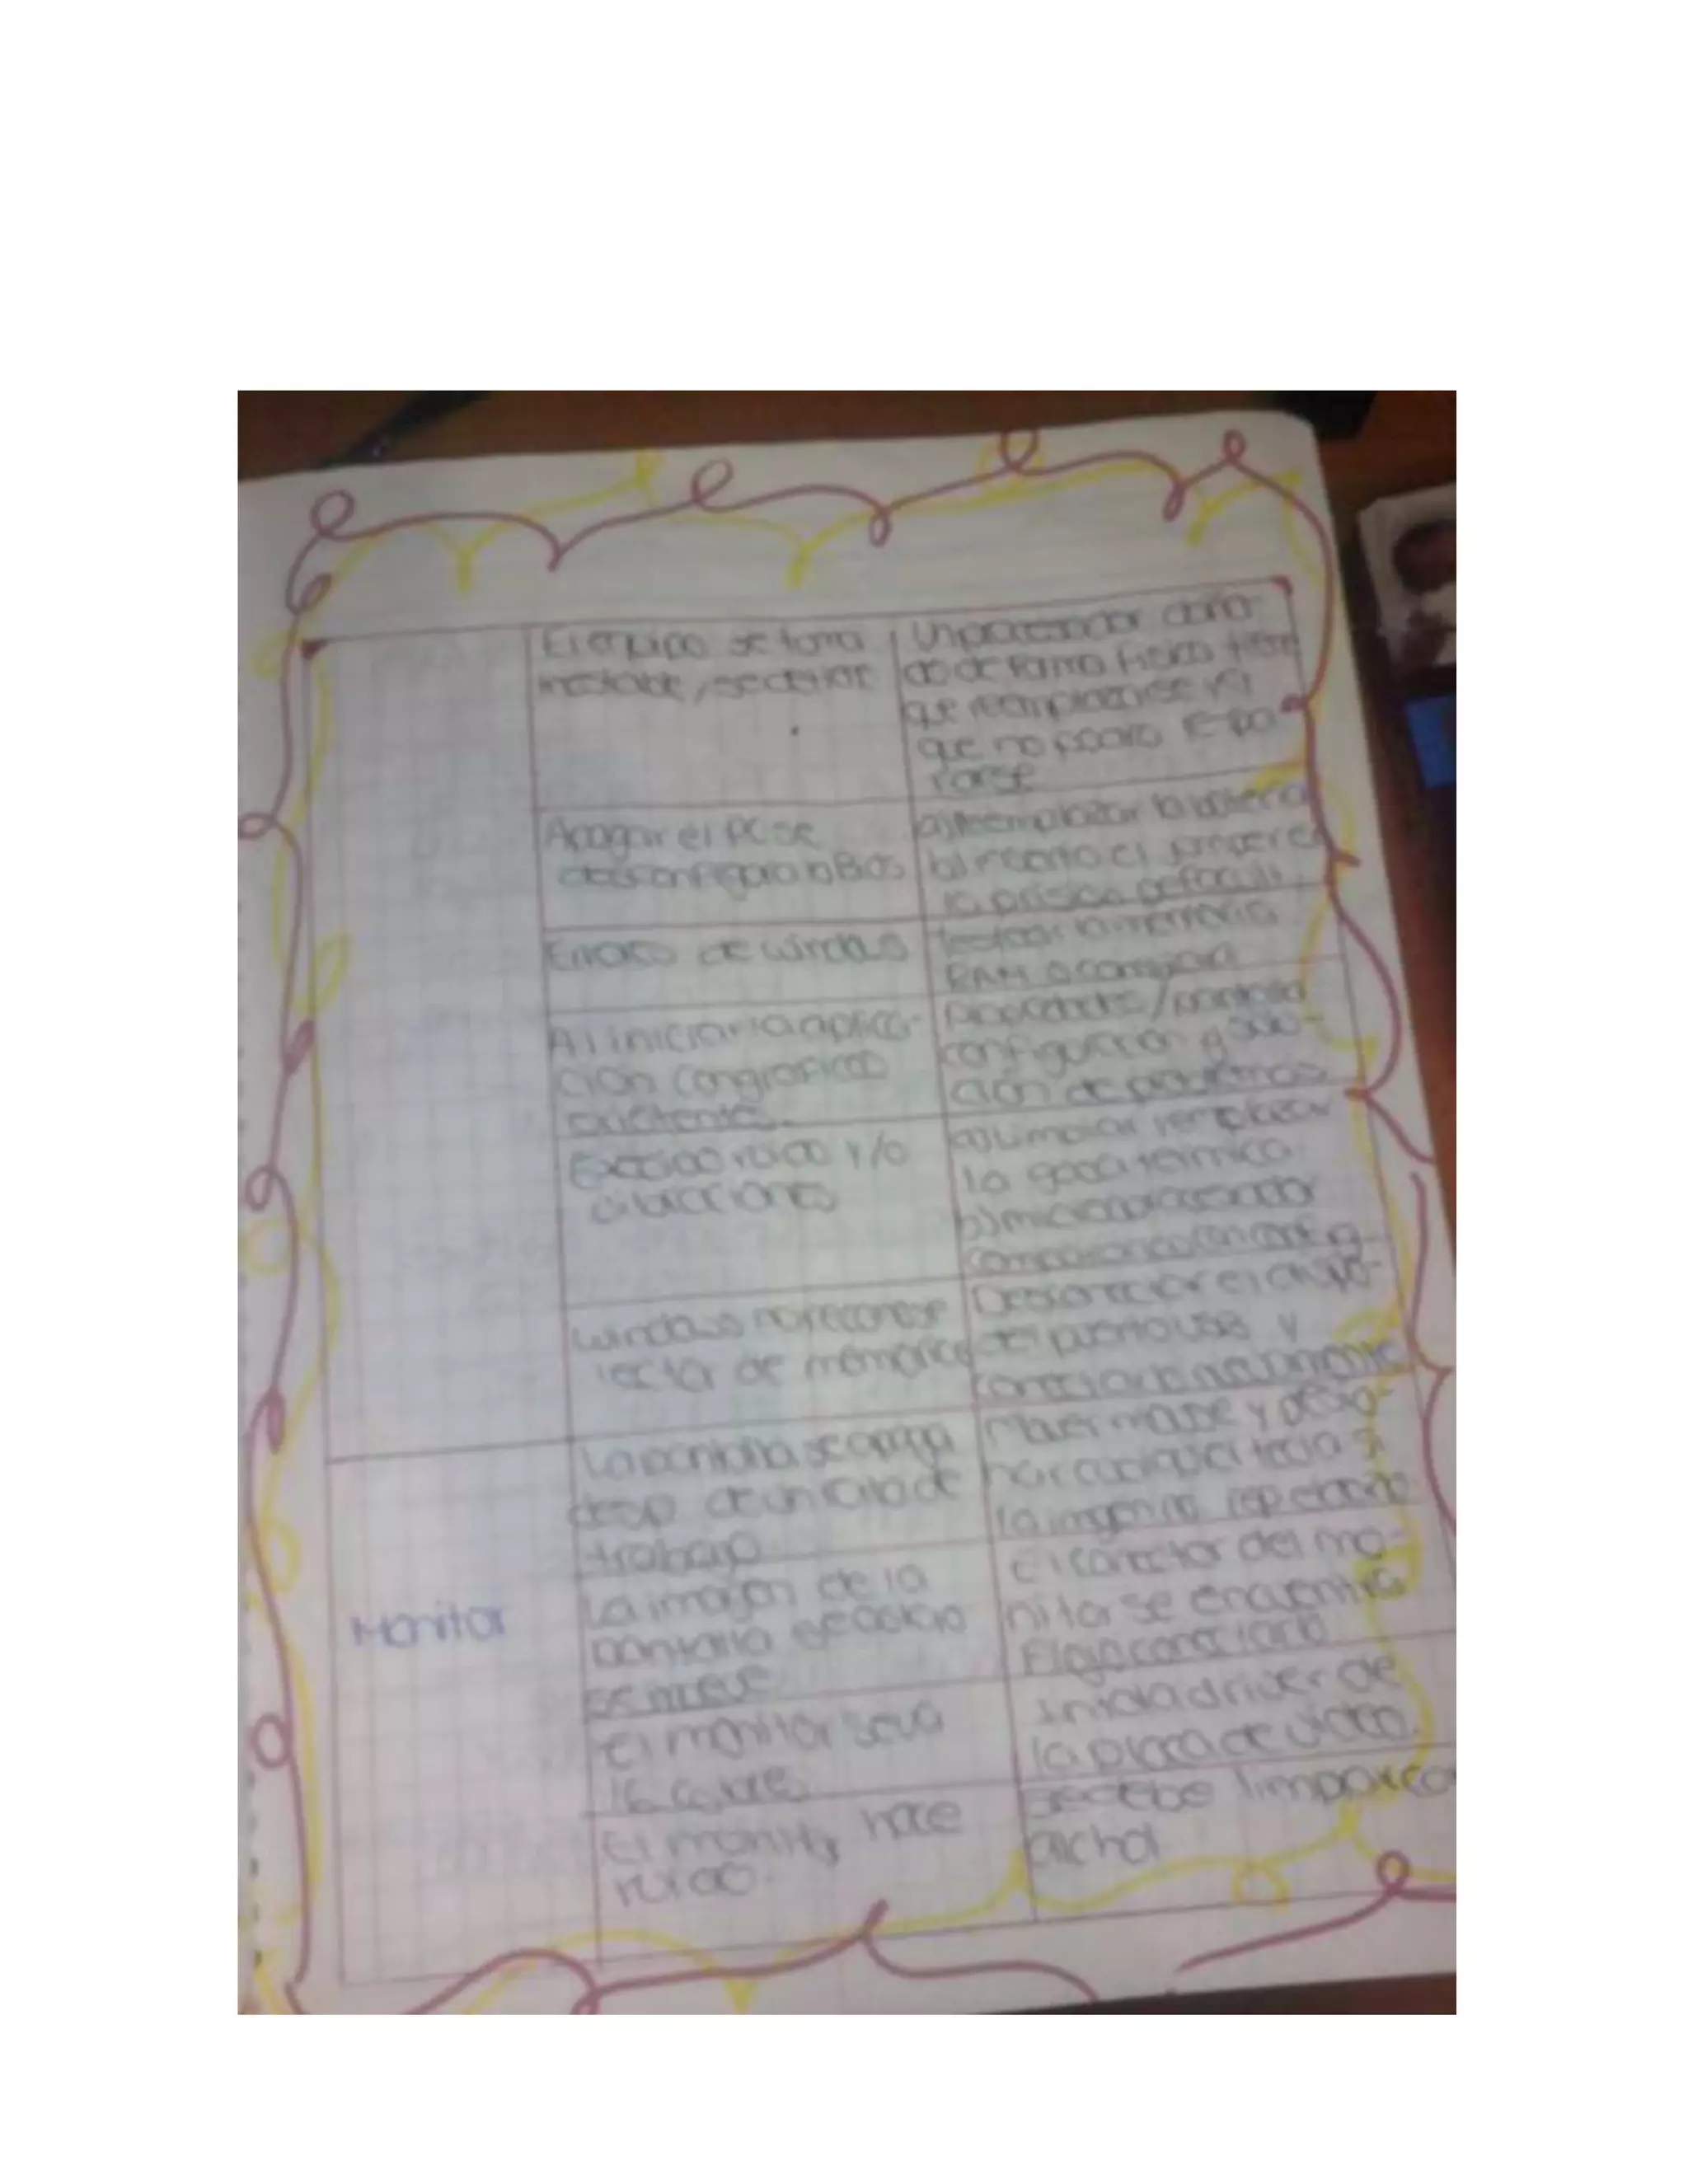 El equipo se torna
inestable, se detiene
Un procesador daña-
do de forma física tiene
que reemplazarse ya
que no podra repa-
rarse
Apagar el PC se
desconfigura la Bios
a) Reemplazar la bateria
b)
Errores de windows
Testear la memoria
RAM o
Al iniciar la aplica-
cion con graficos
existentes.
Propiedades / pantalla
configuracion y solu-
cion de problemas
Excesivo ruido y/o
vibraciones
a) Limpiar remplazar
la termica
b) microprocesador
Windows no reconoce
de memorias
Desconectar el
del puerto USB y
conectarlo nuevamente
Monitor
La pantalla se apaga
desp de un rato de
trabajo
Mover mause y
cualquier tecla si
la imagen no
La imagen de la
pantalla
se mueve
El conector del mo-
nitor se encuentra
flojo conectarlo
El monitor se va
16 colores
Instala driver de
la placa de video.
El monitor hace
ruido.
se debe limpiar con
alchol